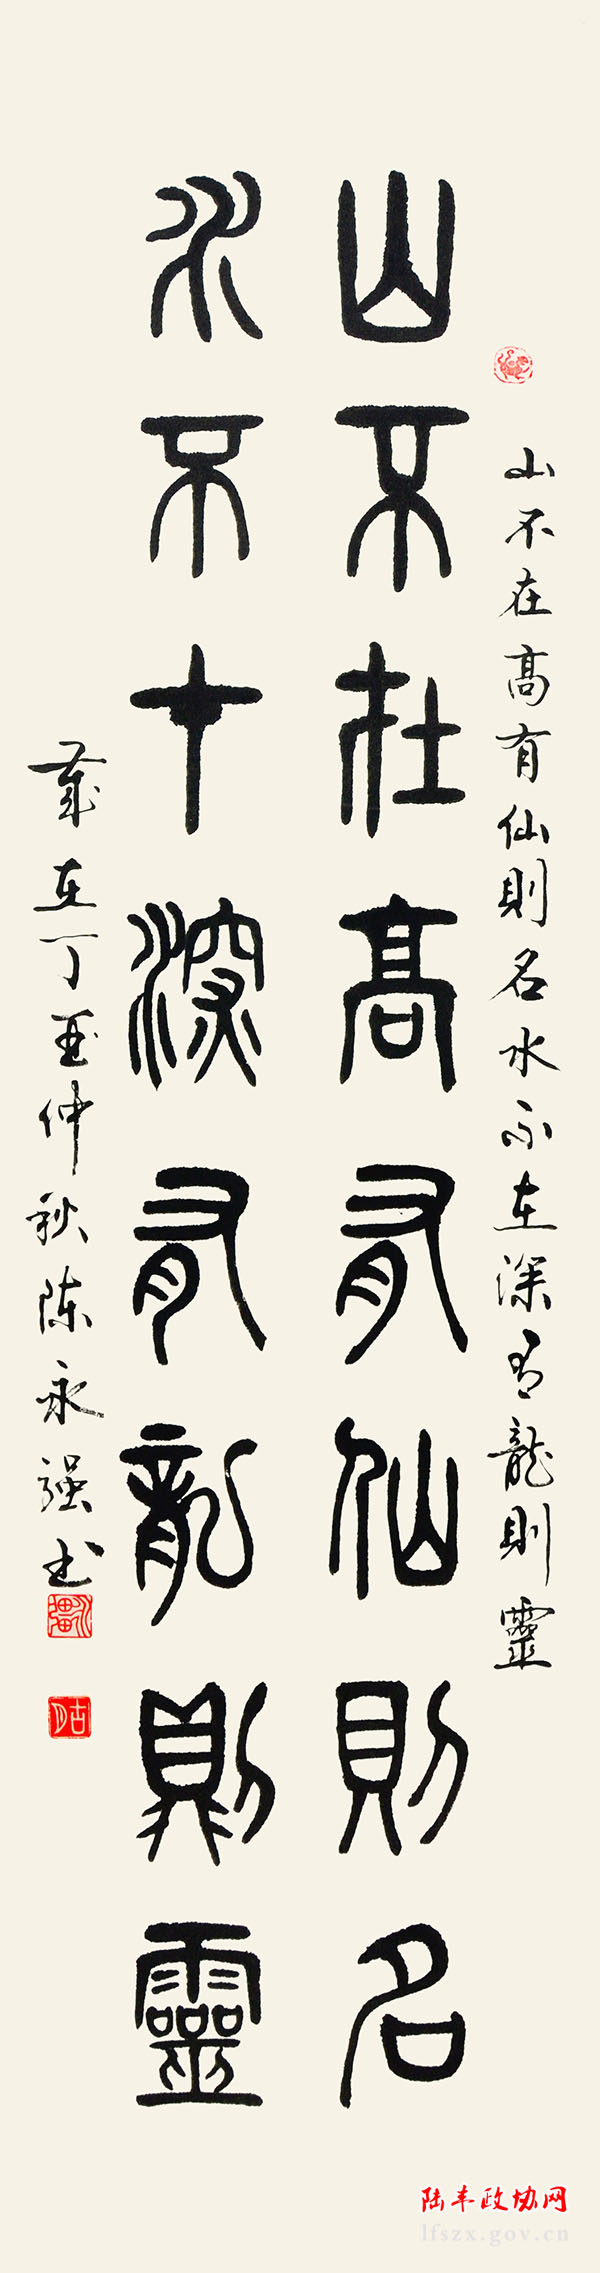 山不在高有仙則名水不在深有龍則靈
山不在高有仙則名
水不在深有龍則靈
歲在丁酉仲秋陈永强书
古月
陆丰政协网
lfszx.gov.cn